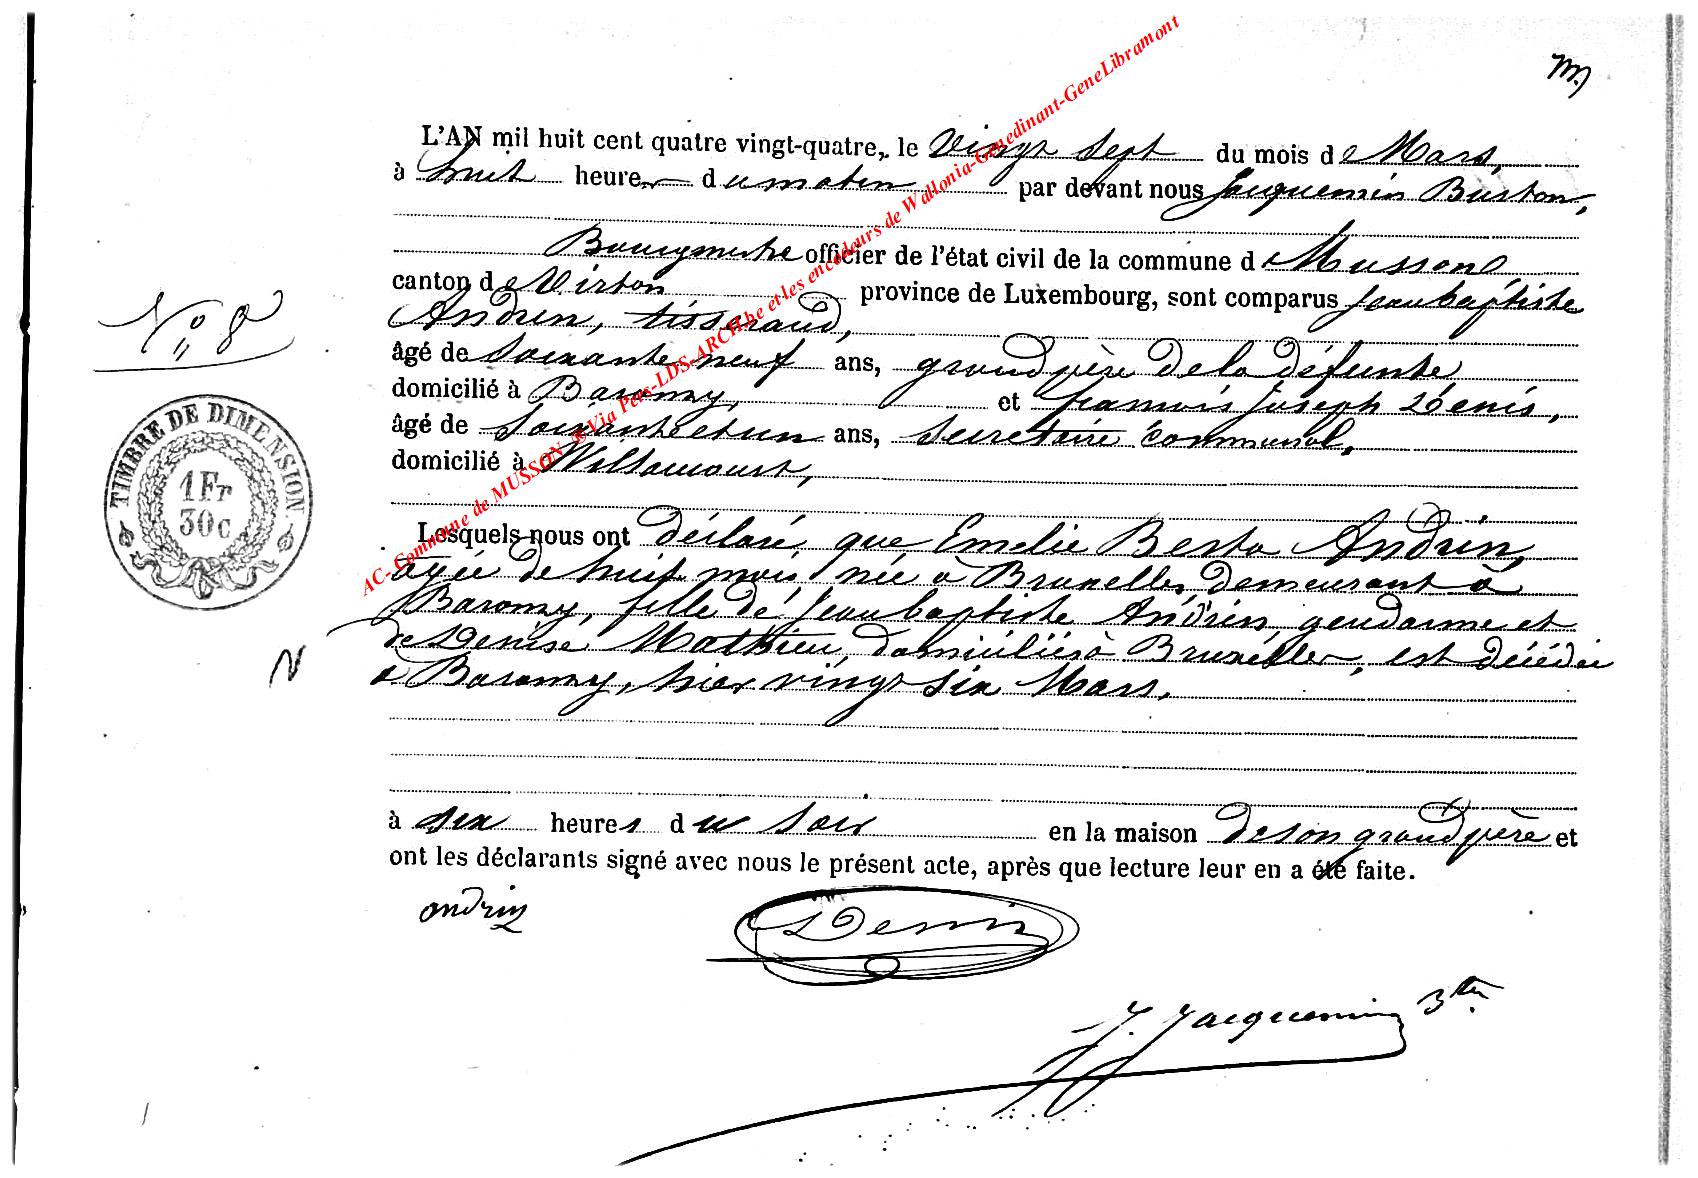 m
L'AN mil huit cent quatre vingt-quatre, le Vingt Sept du mois de Mars,
à huit heures du matin par devant nous Jacquemin Buston,
Bourgmestre officier de l'état civil de la commune de Musson,
canton de Virton province de Luxembourg, sont comparus Jeanbaptiste
Andrin, tisserand,
N° 8
âgé de Soixante neuf ans, grand père de la défunte,
domicilié à Baranzy, et francois Joseph Denis,
âgé de Soixante et un ans, Secretaire communal,
domicilié à Willancourt,
TIMBRE DE DIMENSION
1 Fr
30 c
Lesquels nous ont déclaré, que, Emelie Berta Andrin,
agée de huit mois, née à Bruxelles, demeurant à
Baranzy, fille de Jeanbaptiste Andrin, gendarme et
de Denise Mathieu, domiciliés à Bruxelles, est décédée
N
à Baranzy, hier vingt six Mars,
à six heures du soir en la maison de son grand père et
ont les déclarants signé avec nous le présent acte, après que lecture leur en a été faite.
andrin
Denis
J. Jacquemin Btn
AC-Commune de MUSSON Via Pers-LDS-ARCH.be et les encodeurs de Wallonia-Genedinant-GeneLibramont